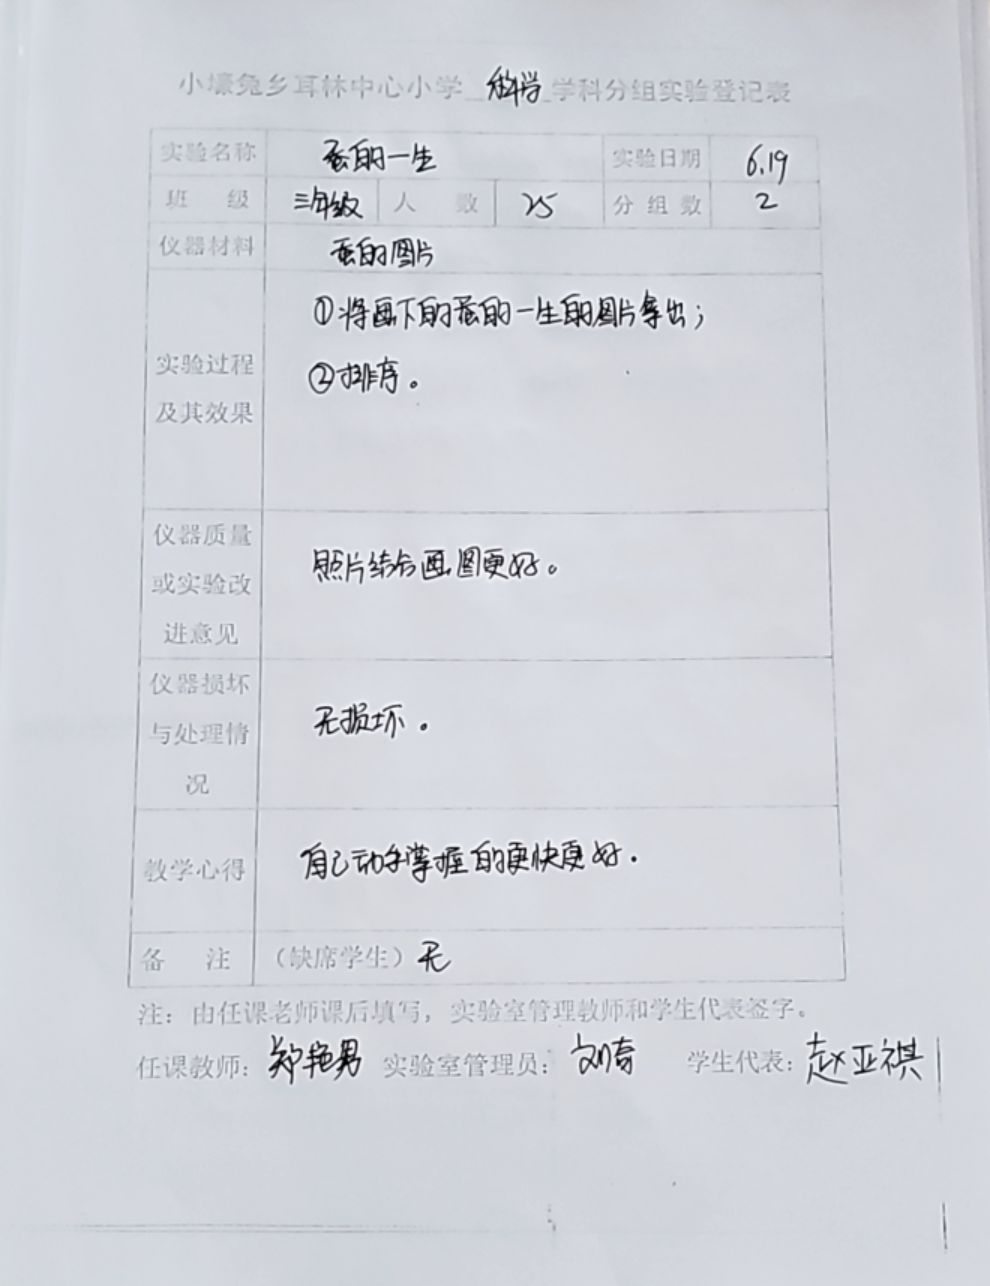 小壕兔乡耳林中心小学 科学 学科分组实验登记表
实验名称 蚕的一生 实验日期 6.19
班 级 三年级 人 数 25 分组数 2
仪器材料 蚕的图片
①将画下的蚕的一生的图片拿出；
实验过程 ②排序。
及其效果
仪器质量
或实验改 照片结合画图更好。
进意见
仪器损坏
与处理情 无损坏。
况
教学心得 自己动手掌握的更快更好.
备 注 （缺席学生）无
注：由任课老师课后填写，实验室管理教师和学生代表签字。
任课教师：郑艳男 实验室管理员：刘奇 学生代表：赵亚祺